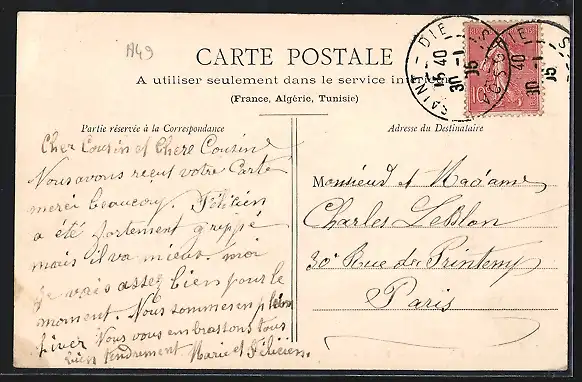 A49
CARTE POSTALE
A utiliser seulement dans le service intérieur
(France, Algérie, Tunisie)
SAINT-DIÉ
15 40
30 -1
05
VOSGES
10
Partie réservée à la Correspondance
Cher Cousin et Chere Cousine
Nous avons reçut votre Carte
merci beaucoup. Félicien
a été fortement grippé
mais il va mieux. moi
je vais assez bien pour le
moment. Nous sommes en plein
hiver Nous vous embrassons tous
bien tendrement Marie et Félicien.
Adresse du Destinataire
Monsieur et Madame
Charles LeBlon
30 Rue du Printemps
Paris